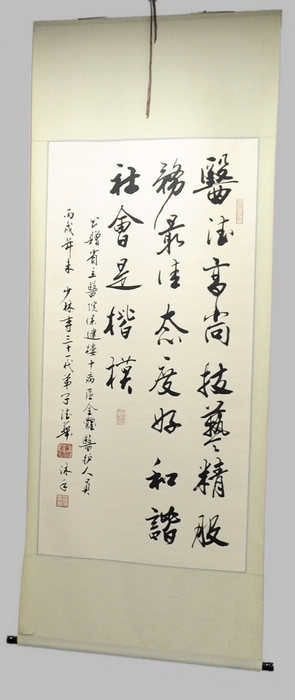 醫德高尚技藝精服
務最佳态度好和諧
社會是楷模
书贈省立醫院保健楼十病區全體醫护人員
丙戌年末少林寺三十一代弟子德華沐手